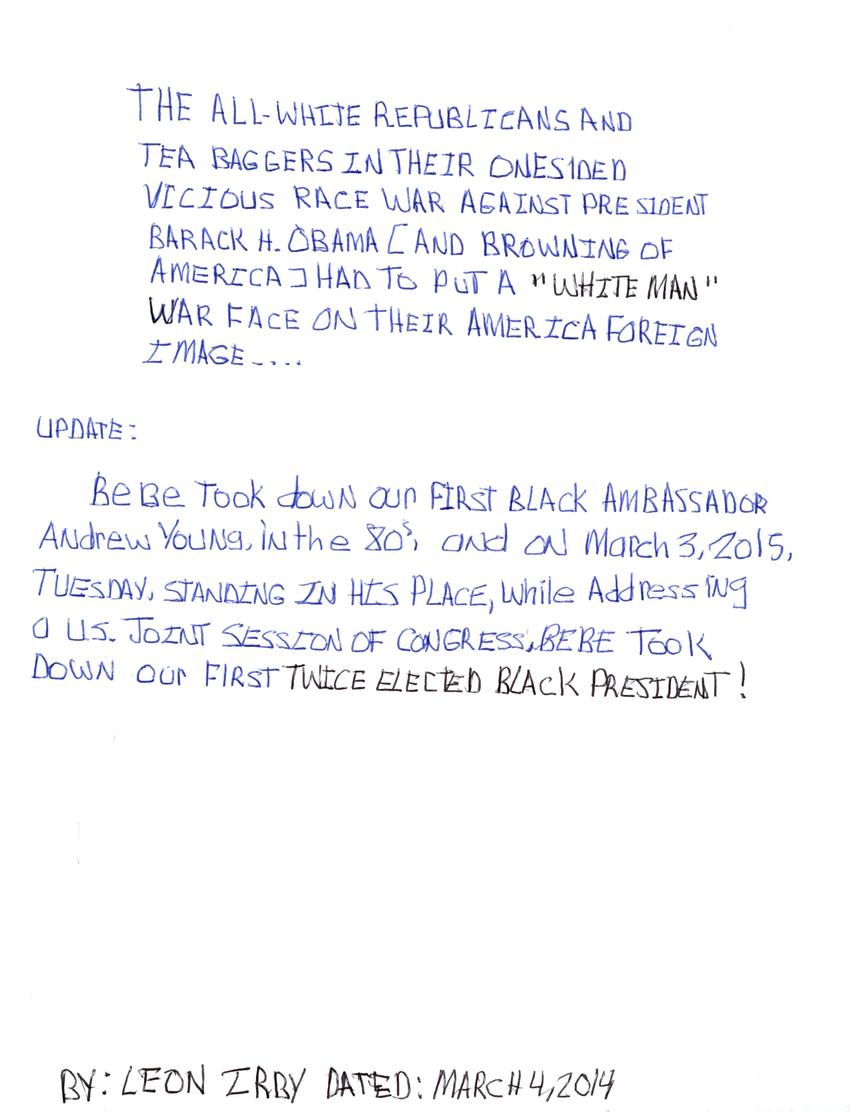 THE ALL-WHITE REPUBLICANS AND
TEA BAGGERS IN THEIR ONESIDED
VICIOUS RACE WAR AGAINST PRESIDENT
BARACK H. OBAMA [AND BROWNING OF
AMERICA] HAD TO PUT A "WHITE MAN"
WAR FACE ON THEIR AMERICA FOREIGN
IMAGE....
UPDATE:
BeBe Took down our FIRST BLACK AMBASSADOR
Andrew Young, in the 80's, and on March 3, 2015,
TUESDAY, STANDING IN HIS PLACE, While Addressing
a U.S. JOINT SESSION OF CONGRESS, BEBE TOOK
DOWN our FIRST TWICE ELECTED BLACK PRESIDENT!
BY: LEON IRBY DATED: MARCH 4, 2014